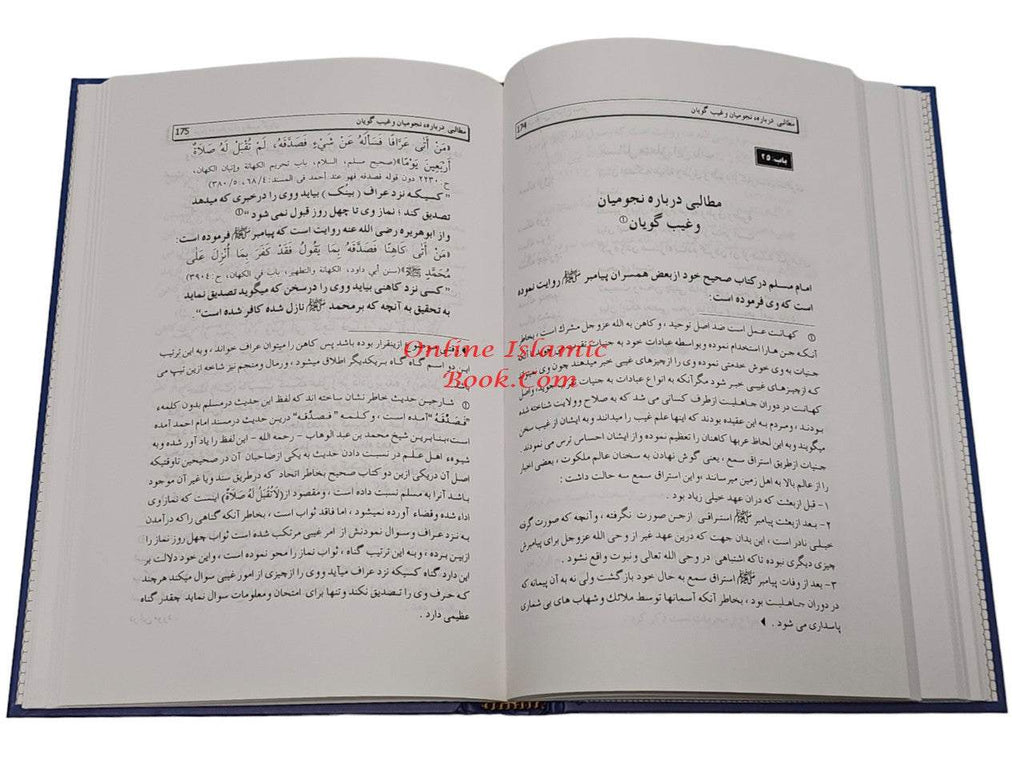 174
مطالبی درباره، نجومیان و غیب گویان
باب ۲۵
مطالبی درباره نجومیان
و غیب گویان①
امام مسلم در کتاب صحیح خود از بعض همسران پیامبر ﷺ روایت نموده
است که وی فرموده است:
① کهانت عمل است ضد اصل توحید ، و کاهن به الله عزوجل مشرك است ، بخاطر
آنکه جن هارا استخدام نموده و بواسطه عبادات خود به جنیات تقرب می جوید ، این
جنیات به وی خوش خدمتی نموده وی را از چیزهای غیبی خبر میدهند چون وی نمیتواند
که از چیزهای غیبی خبر شود مگر آنکه به انواع عبادات به جنیات تقرب بجوید، واصل
کهانت در دوران جاهلیت ازطرف کسانی می شد که به صلاح و ولایت شناخته شده
بودند ، ومردم به این عقیده بودند که اینها علم غیب را میدانند وبه ایشان از غیب سخن
میگویند وبه این لحاظ عربها کاهنان را تعظیم نموده و از ایشان احساس ترس می نمودند
جنیات ازطریق استراق سمع ، یعنی گوش نهادن به سخنان عالم ملکوت ، بعضی اخبار
را از عالم بالا به اهل زمین میرسانند ،و این استراق سمع سه حالت داشت :
۱- قبل ازبعثت که دران عهد خیلی زیاد بود .
۲- بعد ازبعثت پیامبر ﷺ استراقی ازجن صورت نگرفته ، و آنچه که صورت گرفته
خیلی نادر است ، این بدان جهت که درین عهد غیر از وحی الله عزوجل برای پیامبرش
چیزی دیگری نبوده تاکه اشتباهی در وحی الله تعالی و نبوت واقع نشود .
۳- بعد از وفات پیامبر ﷺ استراق سمع به حال خود بازگشت ولی نه به آن پیمانه که
در دوران جاهلیت بود ، بخاطر آنکه آسمانها توسط ملائك و شهاب های بی شماری
پاسداری می شود .
175
مطالبی درباره، نجومیان و غیب گویان
«مَنْ أَتَى عَرَّافًا فَسَأَلَهُ عَنْ شَيْءٍ فَصَدَّقَهُ، لَمْ تُقْبَلْ لَهُ صَلَاةٌ
أَرْبَعِينَ يَوْمًا»(صحیح مسلم، السلام، باب تحریم الکهانة وإتیان الکهان،
ح: ۲۲۳۰ دون قوله فصدقه فهو عند أحمد في المسند: ۶۸/۴، ۳۸۰/۵)
"کسیکه نزد عراف (بینک) بیاید ووی را درخبری که میدهد
تصدیق کند ؛ نماز وی تا چهل روز قبول نمی شود"①
و از ابوهریره رضی الله عنه روایت است که پیامبر ﷺ فرموده است:
«مَنْ أَتَى كَاهِنًا فَصَدَّقَهُ بِمَا يَقُولُ فَقَدْ كَفَرَ بِمَا أُنْزِلَ عَلَى
مُحَمَّدٍ ﷺ»(سنن أبي داود، الکهانة والتطهیر، باب في الکهان، ح:۳۹۰۴)
"کسی نزد کاهنی بیاید ووی را درسخن که میگوید تصدیق نماید
به تحقیق به آنچه که برمحمد ﷺ نازل شده کافر شده است".
ازینقرار بوده باشد پس کاهن را میتوان عراف خواند ، و به این ترتیب
این دو اسم گاه گاه بریکدیگر اطلاق میشود ، ورمال ومنجم نیز شاخه ازین تیپ می
① شارحین حدیث خاطر نشان ساخته اند که لفظ این حدیث درمسلم بدون کلمهء
"فَصَدَّقَهُ" آمده است ، و کلمه "فصدّقه" درین حدیث درمسند امام احمد آمده
است،بنابرین شیخ محمد بن عبد الوهاب - رحمه الله - این لفظ را یاد آور شده وبه
شیوهء اهل علم در نسبت دادن حدیث به یکی ازصاحبان آن در صحیحین تاوقتیکه
اصل آن دریکی ازین دو کتاب صحیح بخاطر اتحاد که درطریق سند ویا غیر آن موجود
باشد آنرا به مسلم نسبت داده است ، ومقصود از(لاَتُقْبَلُ لَهُ صَلاَة) اینست که نماز وی
اداء شده وقضاء آورده نمیشود ، اما فاقد ثواب است ، بخاطر آنکه گناهی را که درآمدن
به نزد عراف و سوال نمودنش از امر غیبی مرتکب شده است ثواب چهل روز نماز را
ازبین برده ، و به این ترتیب گناه ، ثواب نماز را محو نموده است ، واین خود دلالت بر
این دارد گناه کسیکه نزد عراف میآید ووی را ازچیزی از امور غیبی سوال میکند هرچند
که حرف وی را تصدیق نکند وتنها برای امتحان ومعلومات سوال نماید چقدر گناه
عظیمی دارد .
Online Islamic
Book.Com